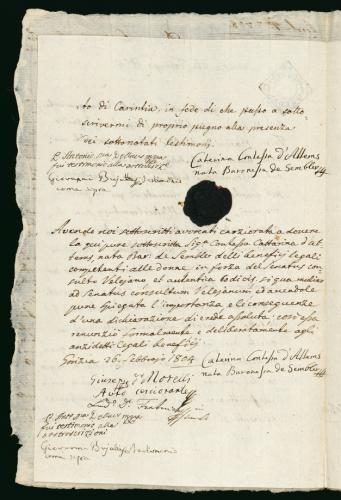 to di Carintia, in fede di che passo a sotto
scrivermi di proprio pugno alla presenza
dei sottonotati testimonj.
Caterina Contessa d'Attems
nata Baronessa de Sembler
P. Antonio
fui testimonio alla
Giovanni testimonio
come sopra
Avendo noi sottoscritti avvocati cerziorata a dovere
la qui pure sottoscritta Sigra Contessa Cattarina d'At
tems, nata Bar: de Sembler delli benefizj legali
competenti alle donne in forza del Senatus con
sulto Velejano et autentica Codicis, si qua mulier
ad Senatus consultum Velejanum, ed avendole
pure spiegata l'importanza e le conseguenze
d'una dichiarazione di erede assoluta: così essa
renunziò formalmente e deliberatamente agli
anzidetti legali beneficj
Gorizia 26. Febbrajo 1804
Caterina Contessa d'Attems
nata Baronessa de Sembler
Giusep. de Morelli
Avto cerciorante
fui testimonio alla
sottoscrizioni
Giovanni testimonio
come sopra